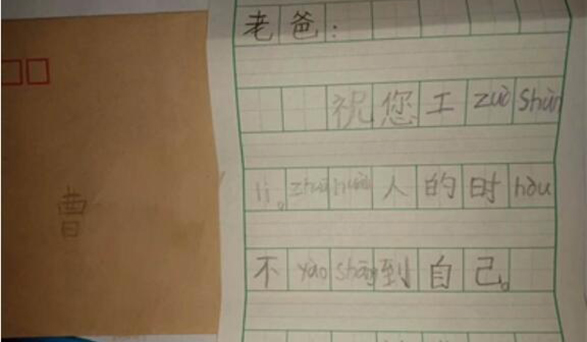 老爸：
祝您工zuò shùn
lì。zhuā huài人的时hòu
不yào shāng到自己。
曹